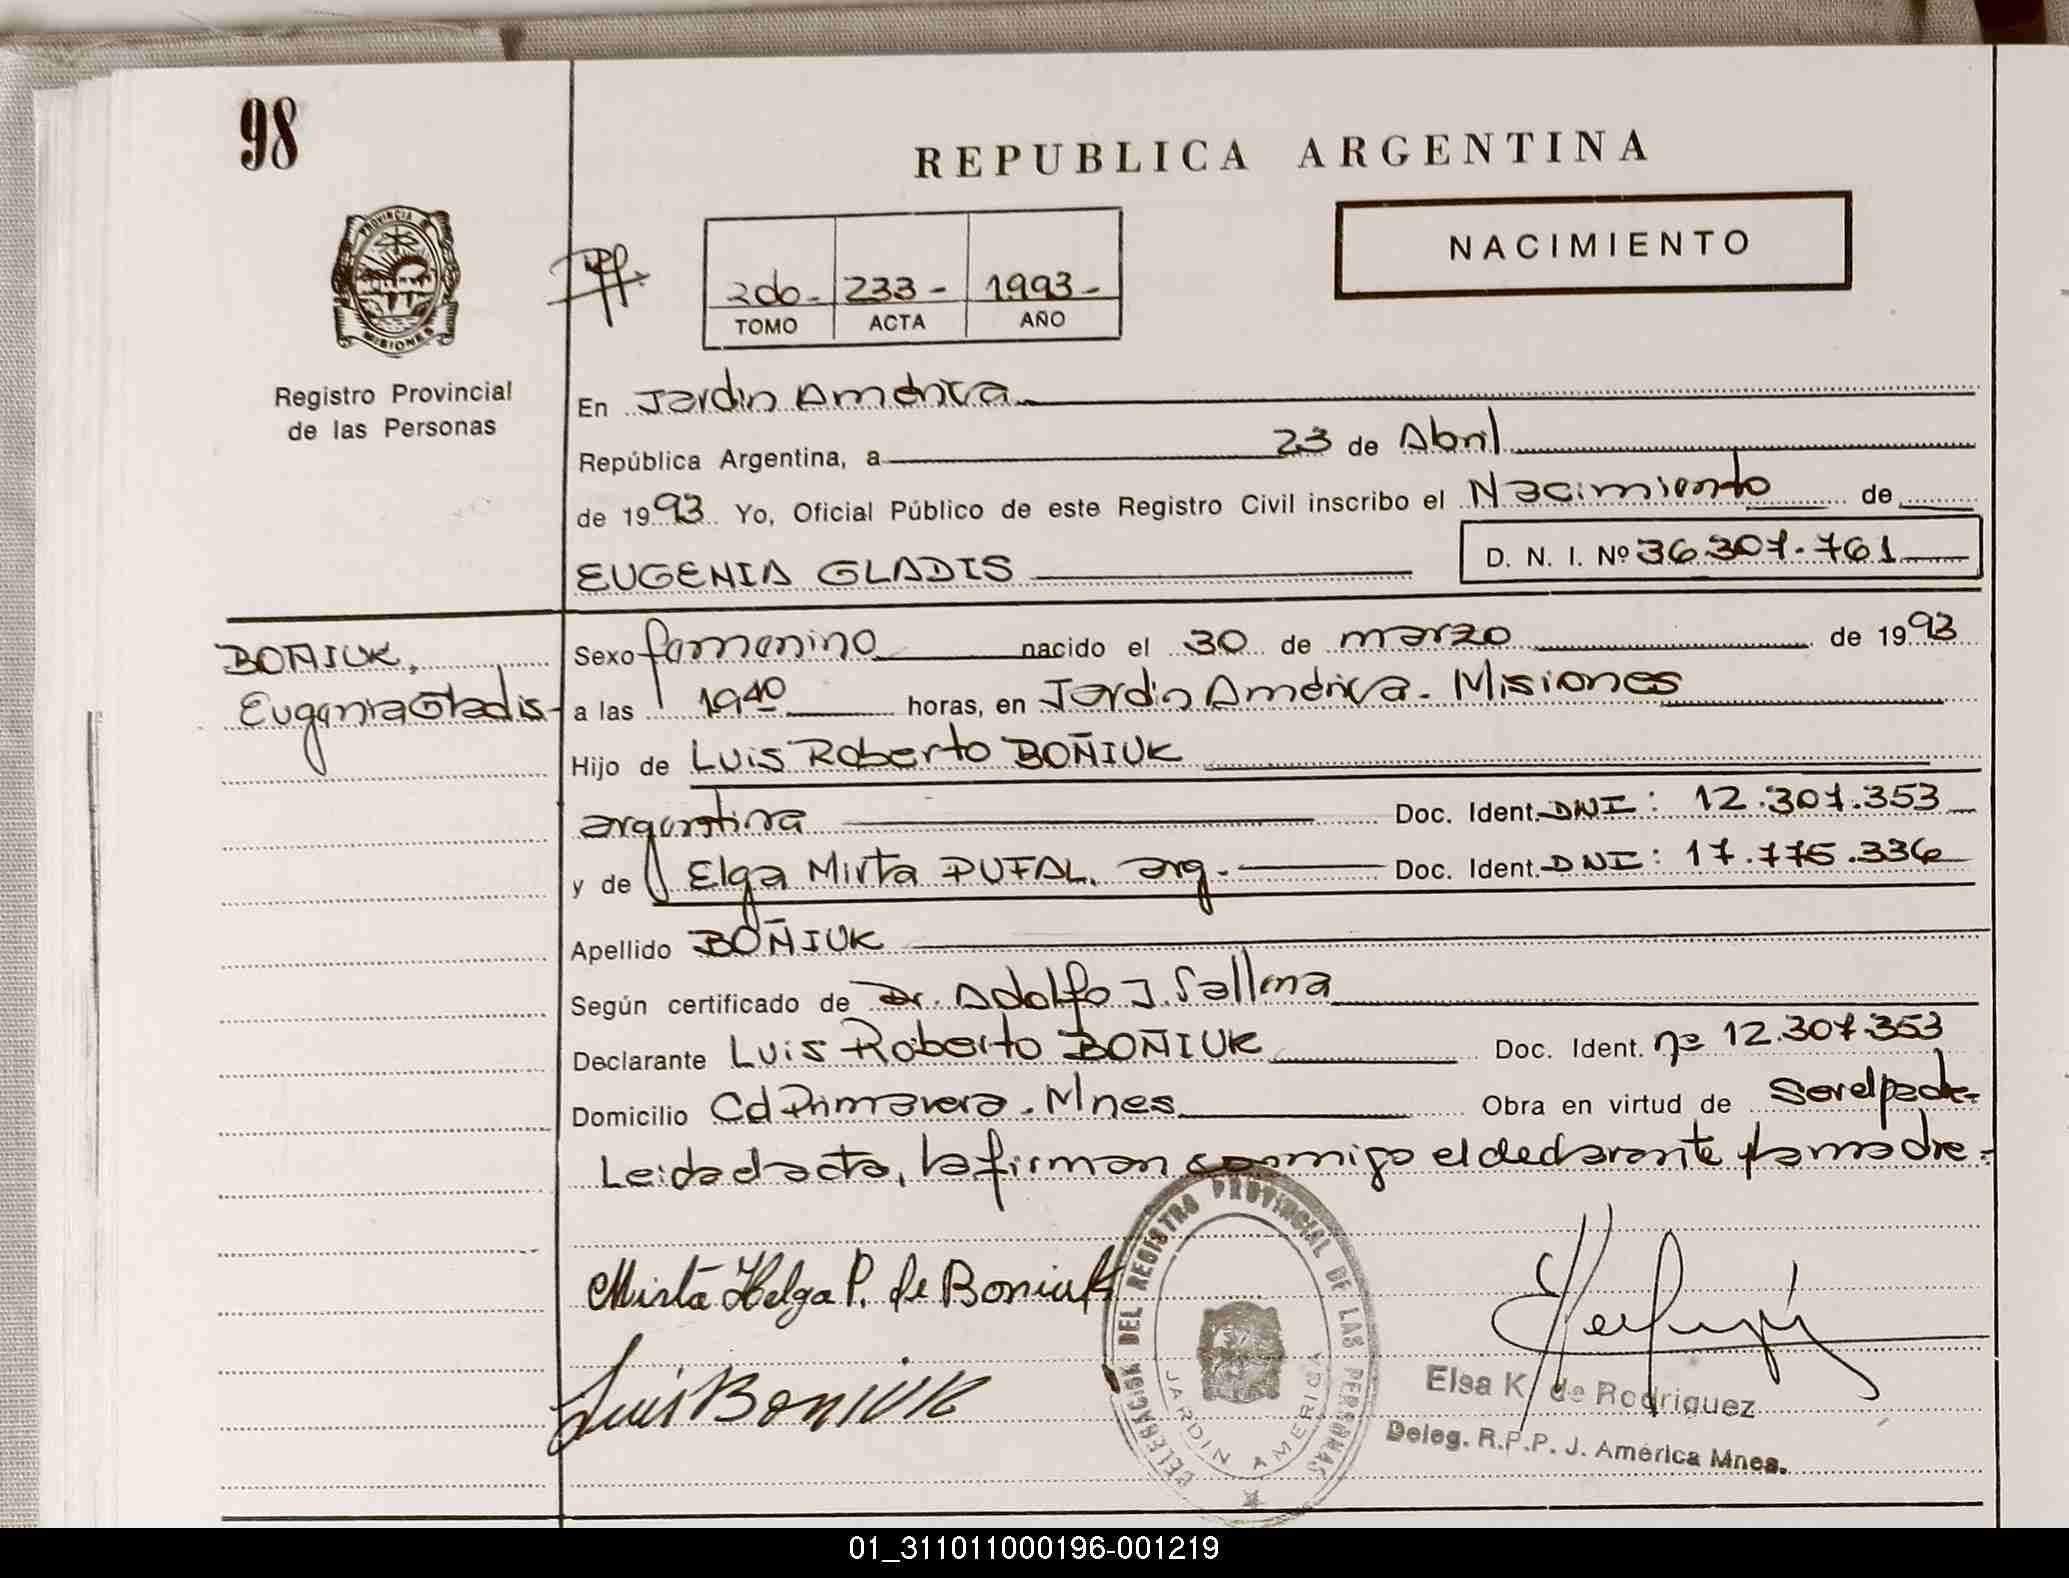 98
REPUBLICA ARGENTINA
NACIMIENTO
PROVINCIA DE
MISIONES
2do- 233- 1993-
TOMO ACTA AÑO
Registro Provincial
de las Personas
En Jardin América
República Argentina, a 23 de Abril
de 1993 Yo, Oficial Público de este Registro Civil inscribo el Nacimiento de
EUGENIA GLADIS D. N. I. Nº 36.307.761
BOÑIUK,
Eugenia Gladis-
Sexo femenino nacido el 30 de marzo de 1993
a las 19 40 horas, en Jardin América. Misiones
Hijo de Luis Roberto BOÑIUK
argentina Doc. Ident. DNI: 12.307.353
y de Elga Mirta PUFAL. arg. Doc. Ident. DNI: 17.775.336
Apellido BOÑIUK
Según certificado de Dr. Adolfo J. Sallma
Declarante Luis Roberto BOÑIUK Doc. Ident. nº 12.307.353
Domicilio Cd Primavera. Mnes Obra en virtud de Ser el padre-
Leida el acta, la firman conmigo el declarante y la madre=
Mirta Helga P. de Boniuk
Luis Boniuk
DELEGACION DEL REGISTRO PROVINCIAL DE LAS PERSONAS
JARDIN AMERICA
Elsa K. de Rodriguez
Deleg. R.P.P. J. América Mnes.
01_311011000196-001219